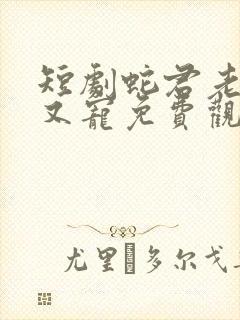 短劇蛇君老
又寵免費觀
尤里�多尔戈